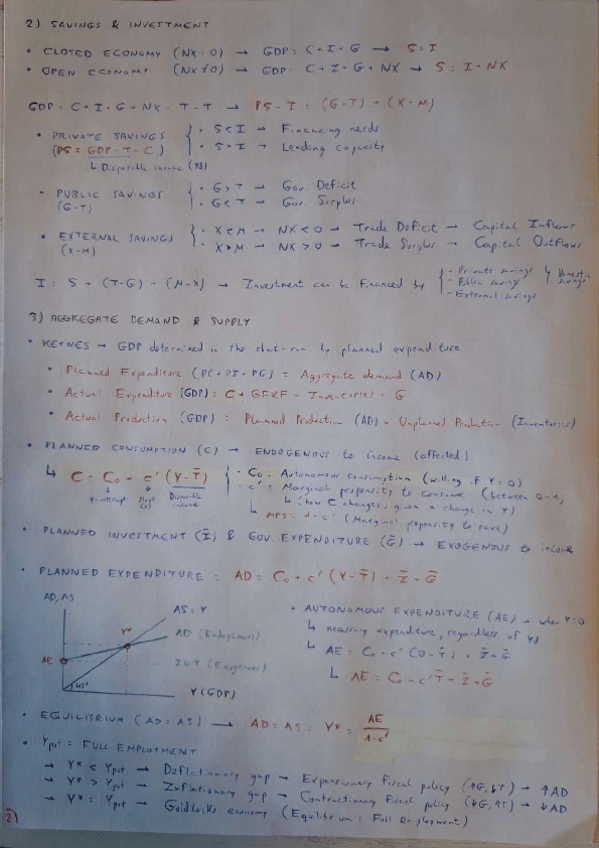 2) SAVINGS & INVESTMENT
• CLOSED ECONOMY (NX = 0) → GDP = C + I + G → S = I
• OPEN ECONOMY (NX ≠ 0) → GDP = C + I + G + NX → S = I + NX
GDP = C + I + G + NX - T - T → PS - I = (G-T) + (X-M)
• PRIVATE SAVINGS • S < I → Financing needs
(PS = GDP - T - C) • S > I → Lending capacity
↳ Disposable income (Yd)
• PUBLIC SAVINGS • G > T → Gov. Deficit
(G-T) • G < T → Gov. Surplus
• EXTERNAL SAVINGS • X < M → NX < 0 → Trade Deficit → Capital Inflows
(X-M) • X > M → NX > 0 → Trade Surplus → Capital Outflows
I = S + (T-G) + (M-X) → Investment can be financed by - Private savings Domestic savings
- Public savings
- External savings
3) AGGREGATE DEMAND & SUPPLY
• KEYNES → GDP determined in the short-run by planned expenditure
• Planned Expenditure (PC + PI + PG) = Aggregate demand (AD)
• Actual Expenditure (GDP) = C + GFKF + Inventories + G
• Actual Production (GDP) = Planned Production (AD) + Unplanned Production (Inventories)
• PLANNED CONSUMPTION (C) → ENDOGENOUS to income (affected)
↳ C = C₀ + c' (Y - T̄) - C₀ = Autonomous consumption (willing if Y=0)
Y-intercept Slope Disposable income - c' = Marginal propensity to consume (between 0-1)
↳ (how C changes, given a change in Y)
↳ MPS = 1 - c' (Marginal propensity to save)
• PLANNED INVESTMENT (Ī) & GOV. EXPENDITURE (Ḡ) → EXOGENOUS to income
• PLANNED EXPENDITURE = AD = C₀ + c' (Y - T̄) + Ī + Ḡ
AD, AS
AS = Y
Y*
AD (Endogenous)
AE
I + G + T (Exogenous)
45°
Y (GDP)
• AUTONOMOUS EXPENDITURE (AE) → when Y=0
↳ necessary expenditure, regardless of Yd
↳ AE = C₀ + c' (0 - T̄) + Ī + Ḡ
↳ AE = C₀ - c'T̄ + Ī + Ḡ
• EQUILIBRIUM (AD = AS) → AD = AS = Y* = AE / 1-c'
• Ypot = FULL EMPLOYMENT
→ Y* < Ypot → Deflationary gap → Expansionary fiscal policy (↑G, ↓T) → ↑AD
→ Y* > Ypot → Inflationary gap → Contractionary fiscal policy (↓G, ↑T) → ↓AD
→ Y* = Ypot → Goldilocks economy (Equilibrium = Full employment)
2)